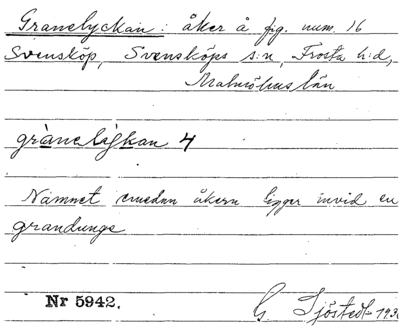 Granelyckan: åker å fig. num. 16
Svensköp, Svensköps s:n, Frosta h:d,
Malmöhus län
gràneligkan 4
Namnet emedan åkern ligger invid en
grandunge
Nr 5942.
G. Sjöstedt